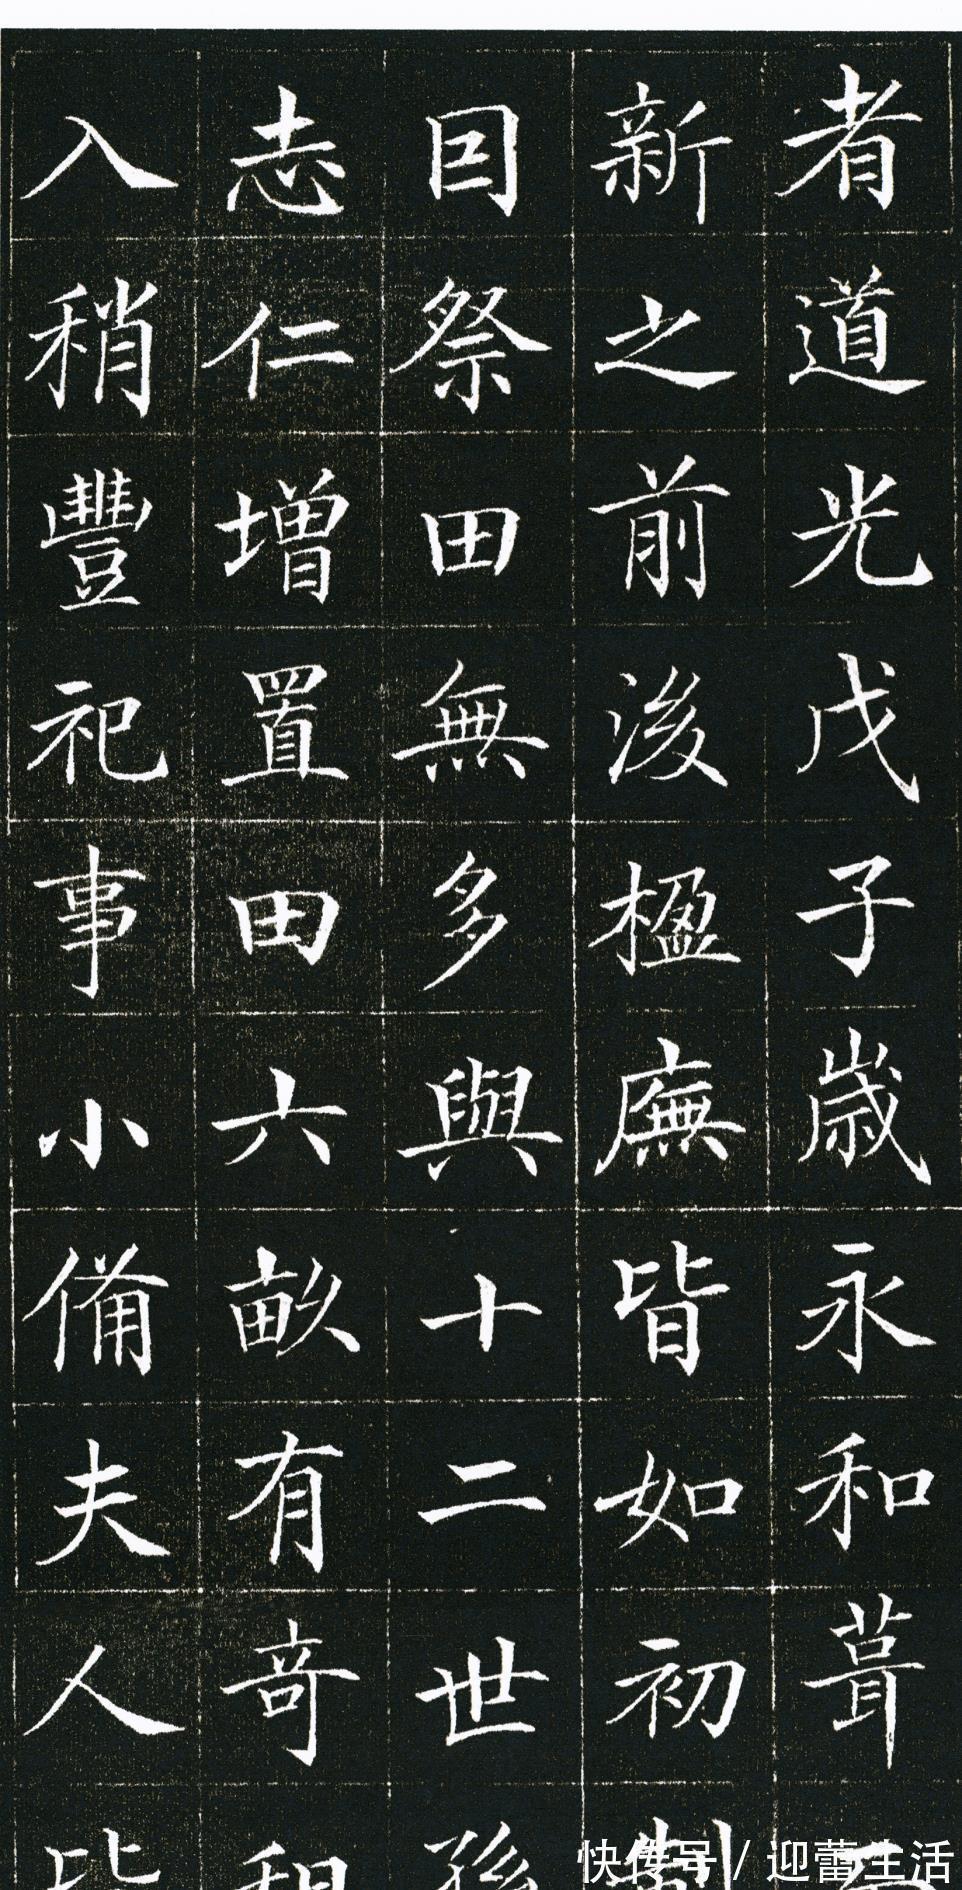 者道光戊子歲永和葺
新之前後楹廡皆如初
囙祭田無多與十二世孫
志仁增置田六畝有奇
入稍豐祀事小備夫人
快传号/迎蕾生活